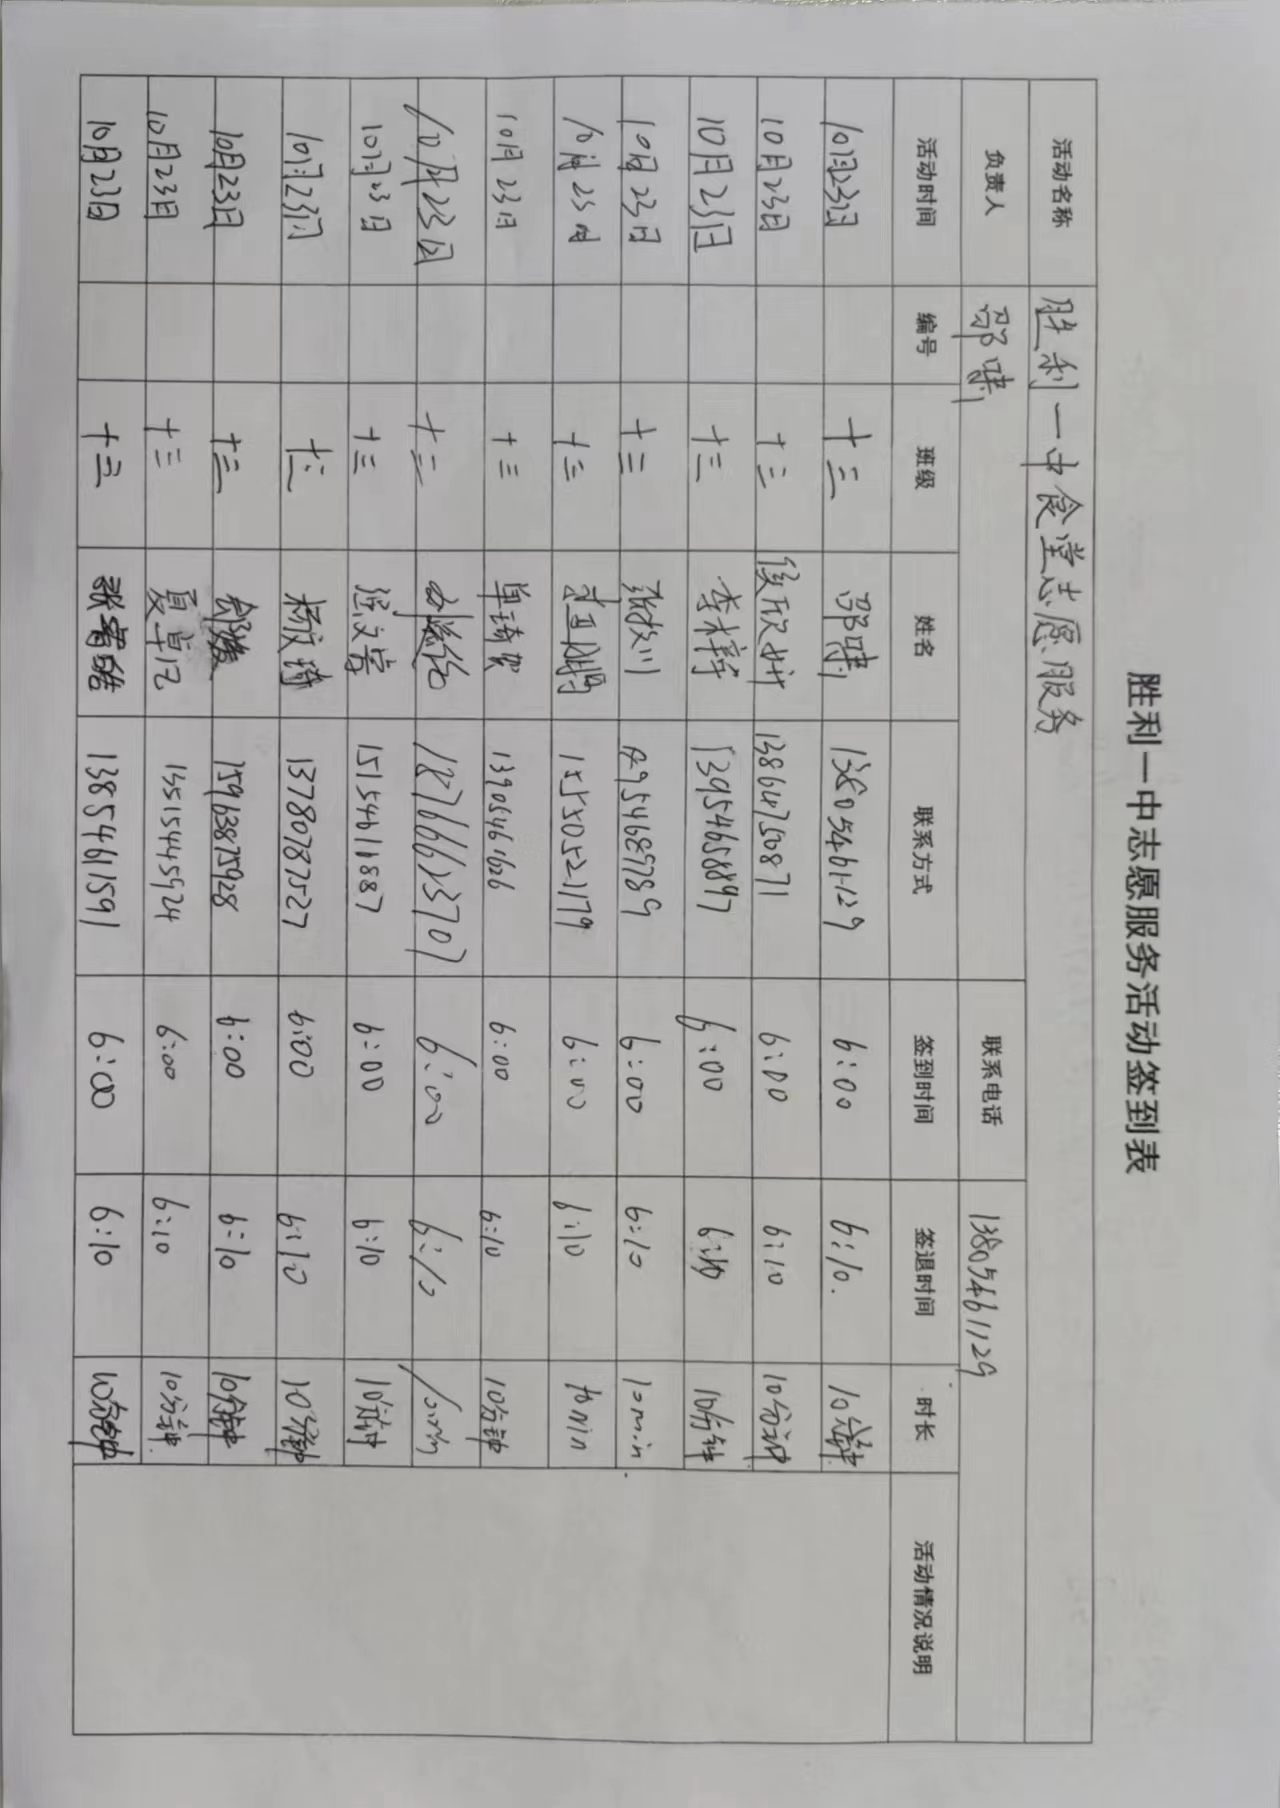 胜利一中志愿服务活动签到表
活动名称 胜利一中食堂志愿服务
负责人 邵啸 联系电话 13805461129
活动时间 编号 班级 姓名 联系方式 签到时间 签退时间 时长 活动情况说明
10月23日 十三 邵啸 13805461129 6:00 6:10. 10分钟
10月23日 十三 13864750871 6:00 6:10 10分钟
10月23日 十三 李梓 13954658897 6:00 6:10 10分钟
10月23日 十三 6:00 6:10 10min
10月23日 十三 15550521179 6:00 6:10 10min
10月23日 十三 单琦贺 13905461626 6:00 6:10 10分钟
10月23日 十三 18766613707 6:00 6:10 10min
10月23日 十三 15154611887 6:00 6:10 10分钟
10月23日 十三 杨文琦 13780787527 6:00 6:10 10分钟
10月23日 十三 15963875928 6:00 6:10 10分钟
10月23日 十三 夏卓记 6:00 6:10 10分钟
10月23日 十三 13854611591 6:00 6:10 10分钟